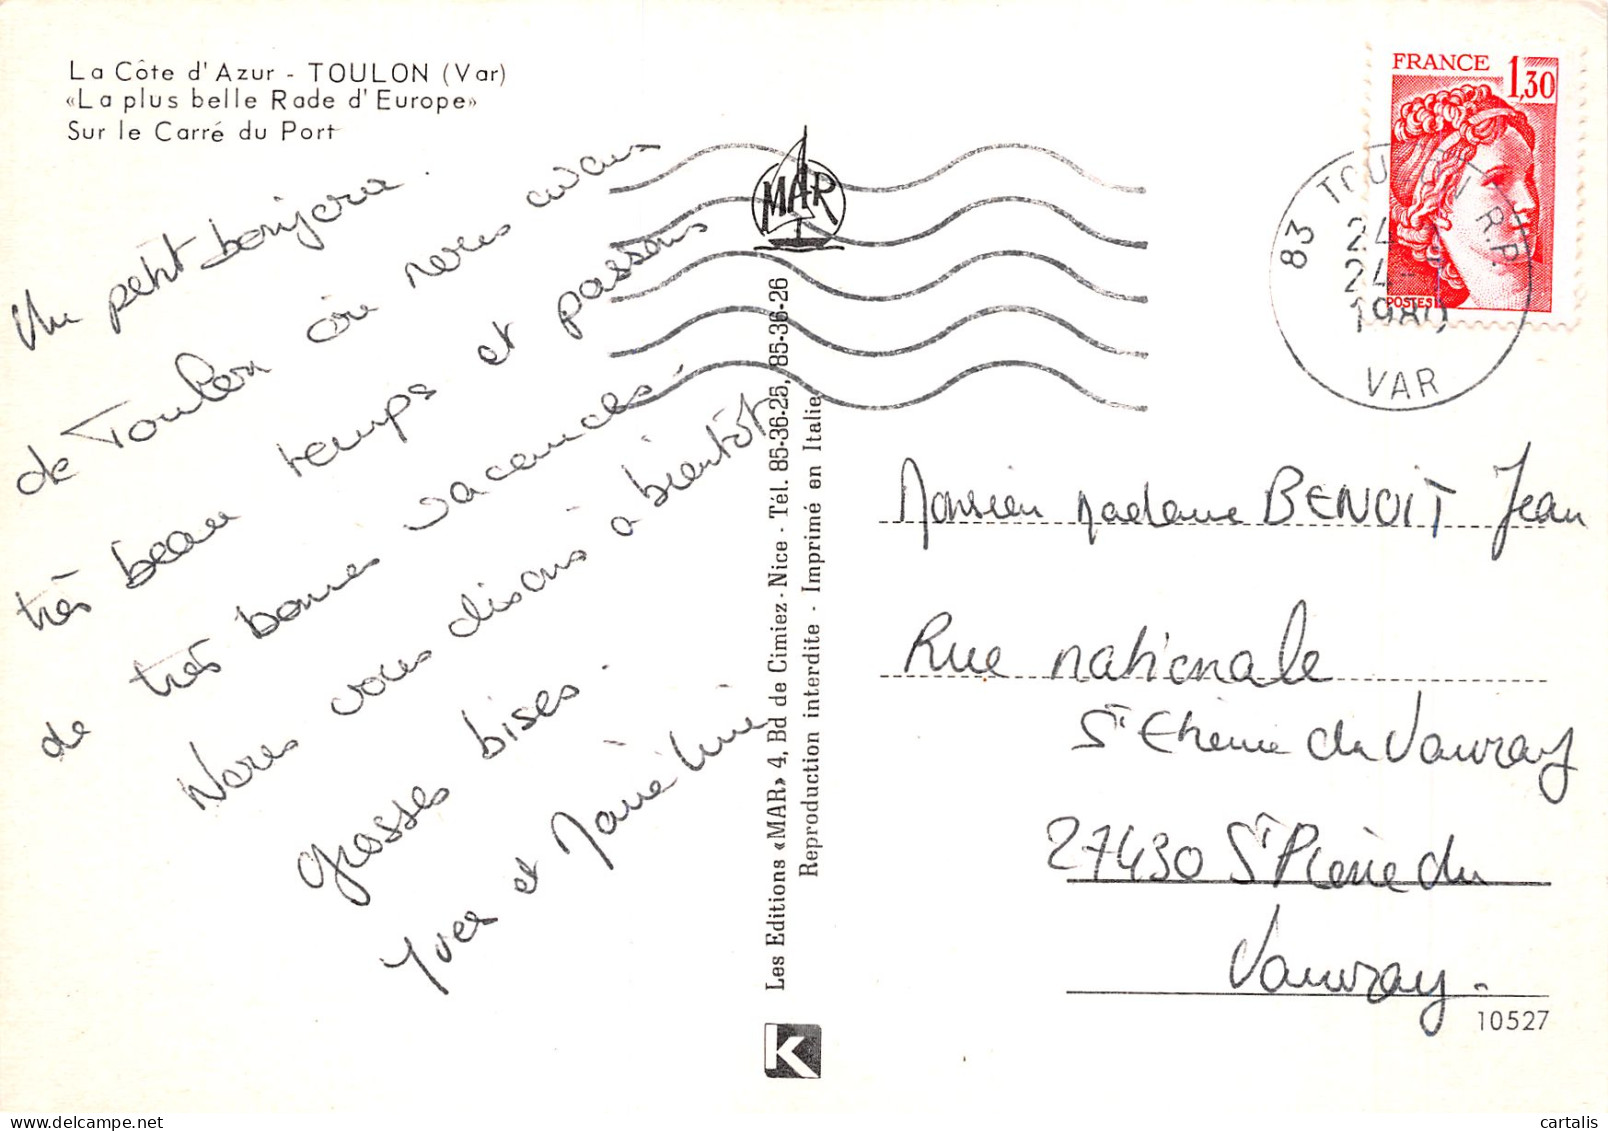 La Côte d'Azur - TOULON (Var)
«La plus belle Rade d'Europe»
Sur le Carré du Port
Un petit bonjour
de Toulon où nous avons
très beau temps et passons
de très bonnes vacances.
Nous vous disons a bientôt
grosses bises.
Yves et Marie
Les Editions «MAR» 4, Bd de Cimiez - Nice - Tél. 85-36-25, 85-36-26
Reproduction interdite - Imprimé en Italie
MAR
K
FRANCE 1,30
POSTES
83 TOULON R.P.
24-
24-
1980
VAR
Monsieur Madame BENOIT Jean
Rue nationale
St Etienne du Vauvray
27430 St Pierre du
Vauvray.
10527
cartalis
www.delcampe.net